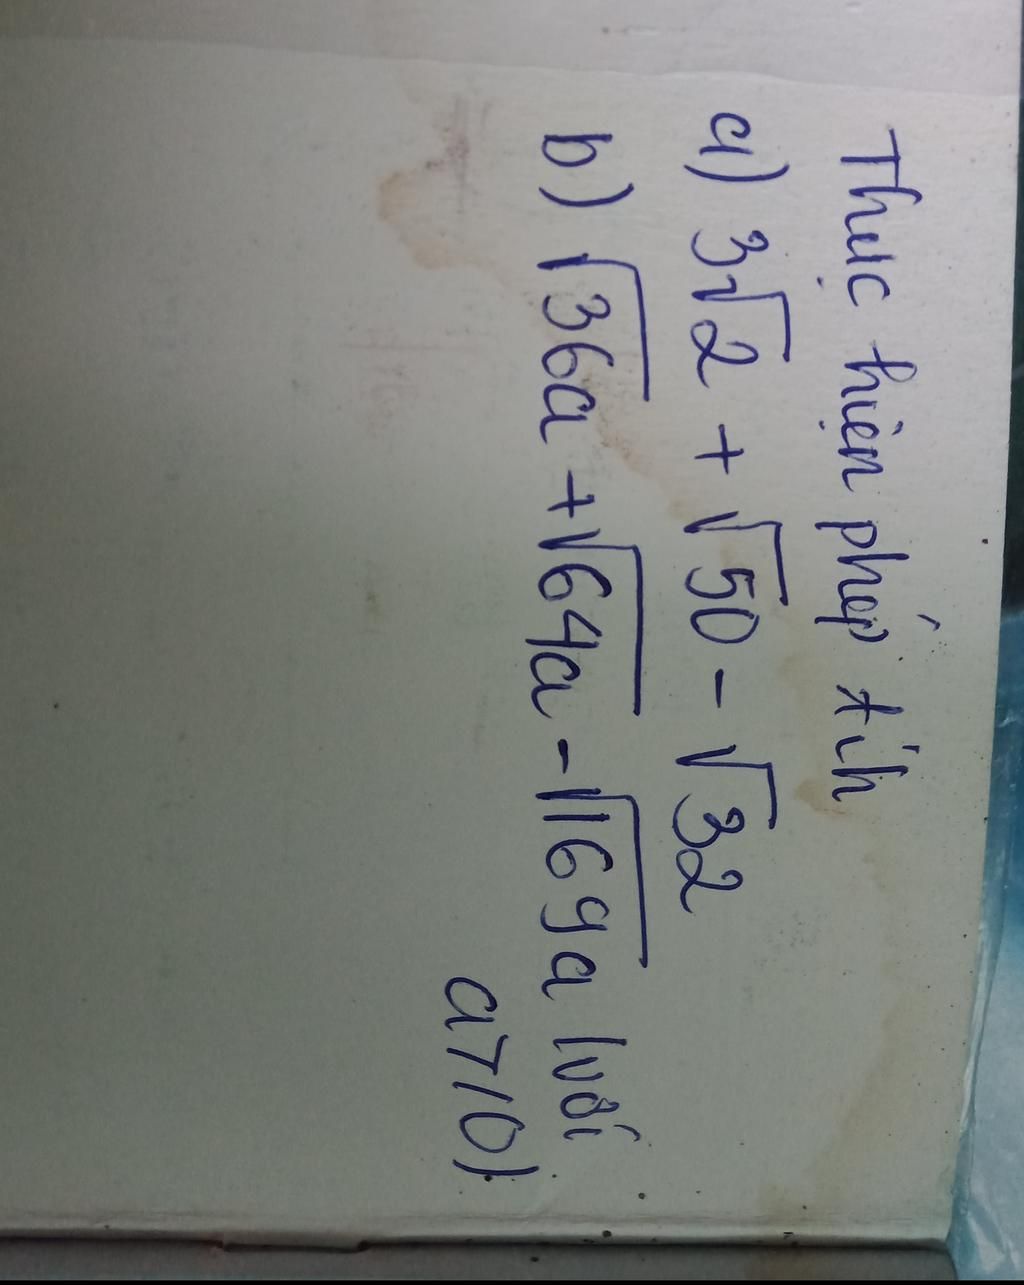 Thực hiện phép tính
a) 3√2 + √50 - √32
b) √36a + √64a - √169a (với
a ≥ 0)